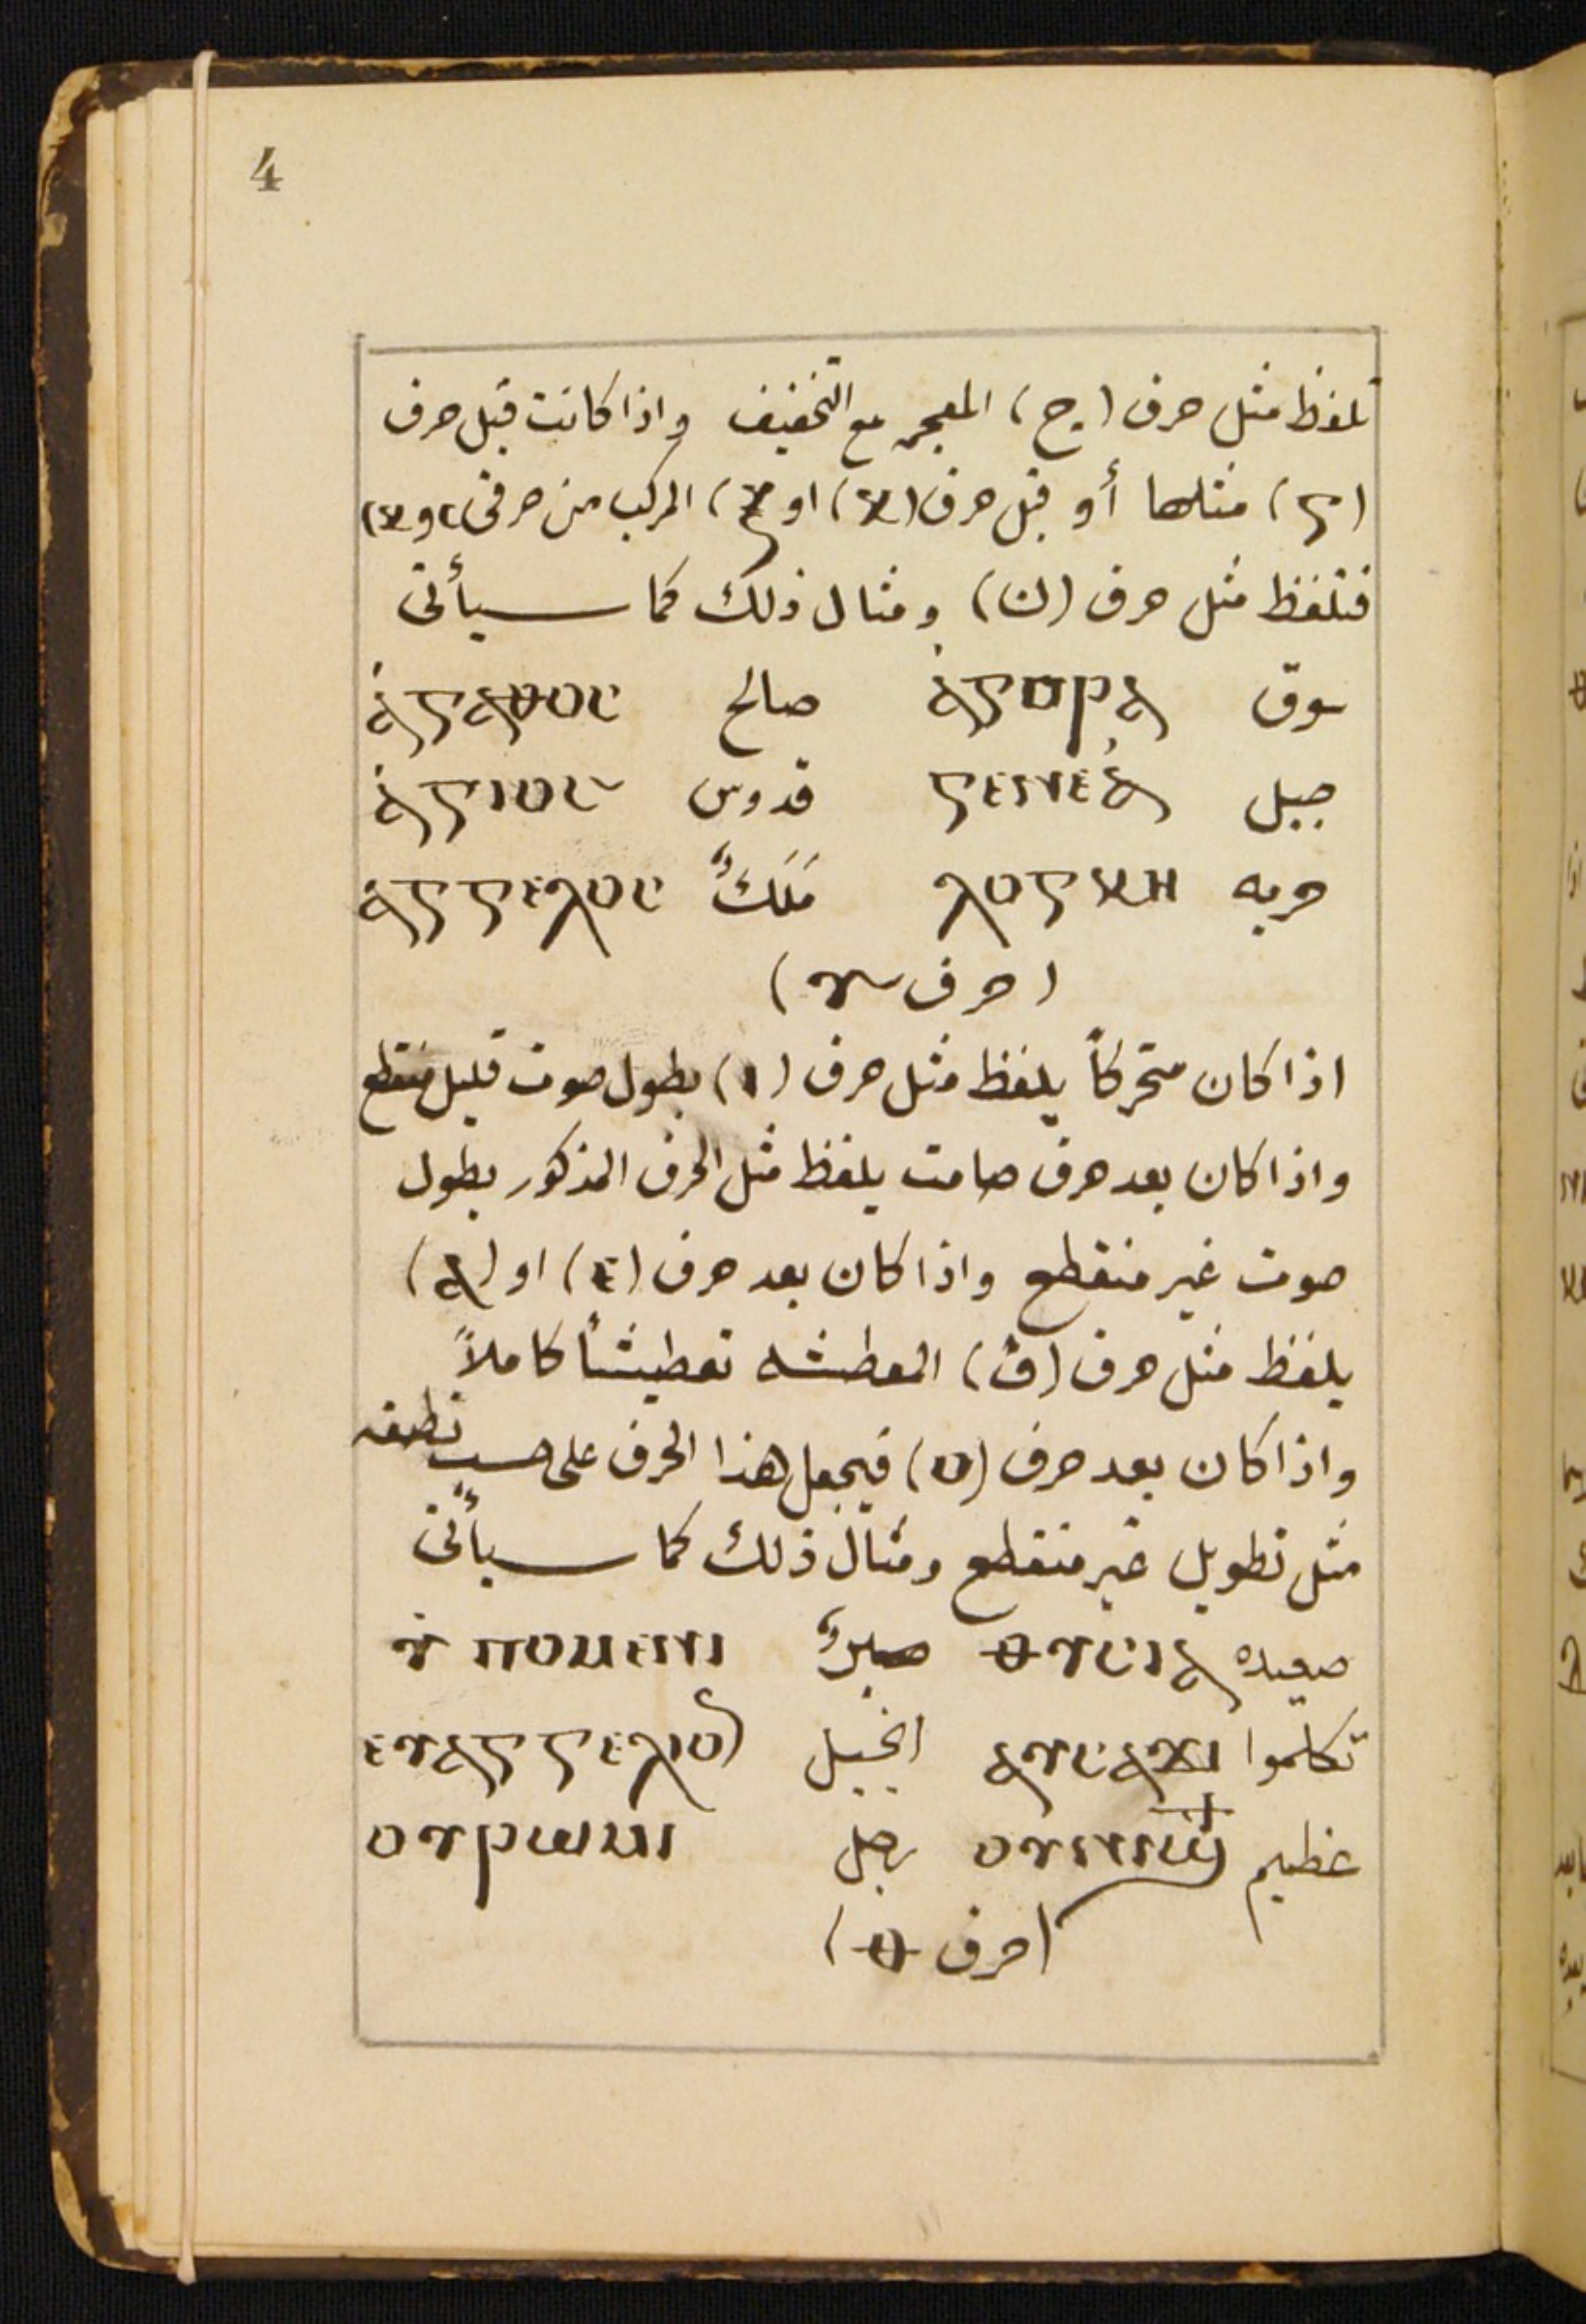 4
تلفظ مثل حرف (ج) المعجمه مع التخفيف واذا كانت قبل حرف
(ⲅ) مثلها أو قبل حرف (ⲭ) او ⲝ) المركب من حرفى
فتلفظ مثل حرف (ن) ومثال ذلك كما سيأتى
سوق ⲁ̀ⲅⲟⲣⲁ صالح ⲁ̀ⲅⲁⲑⲟⲥ
جيل ⲅⲉⲛⲉⲁ̀ قدوس ⲁ̀ⲅⲓⲟⲥ
حربه ⲗⲟⲅⲭⲏ مَلَكٌ ⲁ̀ⲅⲅⲉⲗⲟⲥ
(حرف ⲩ)
اذا كان متحركاً يلفظ مثل حرف (ا) بطول صوت قليل منقطع
واذا كان بعد حرف صامت يلفظ مثل الحرف المذكور بطول
صوت غير منقطع واذا كان بعد حرف (ⲉ) او (ⲁ)
يلفظ مثل حرف (ڤ) المعطشه تعطيشاً كاملاً
واذا كان بعد حرف (ⲟ) فيجعل هذا الحرف على حسب نطقه
مثل تطويل غير منقطع ومثال ذلك كما سيأتى
صعيده ⲑⲩⲥⲓⲁ صبرٌ ⲩ̀ⲡⲟⲙⲉⲛⲓ
تكلموا ⲁⲩⲥⲁϫⲓ انجيل ⲉⲩⲁⲅⲅⲉⲗⲓⲟⲛ
عظيم ⲟⲩⲛⲓϣϯ رجل ⲟⲩⲣⲱⲙⲓ
(حرف ⲑ)